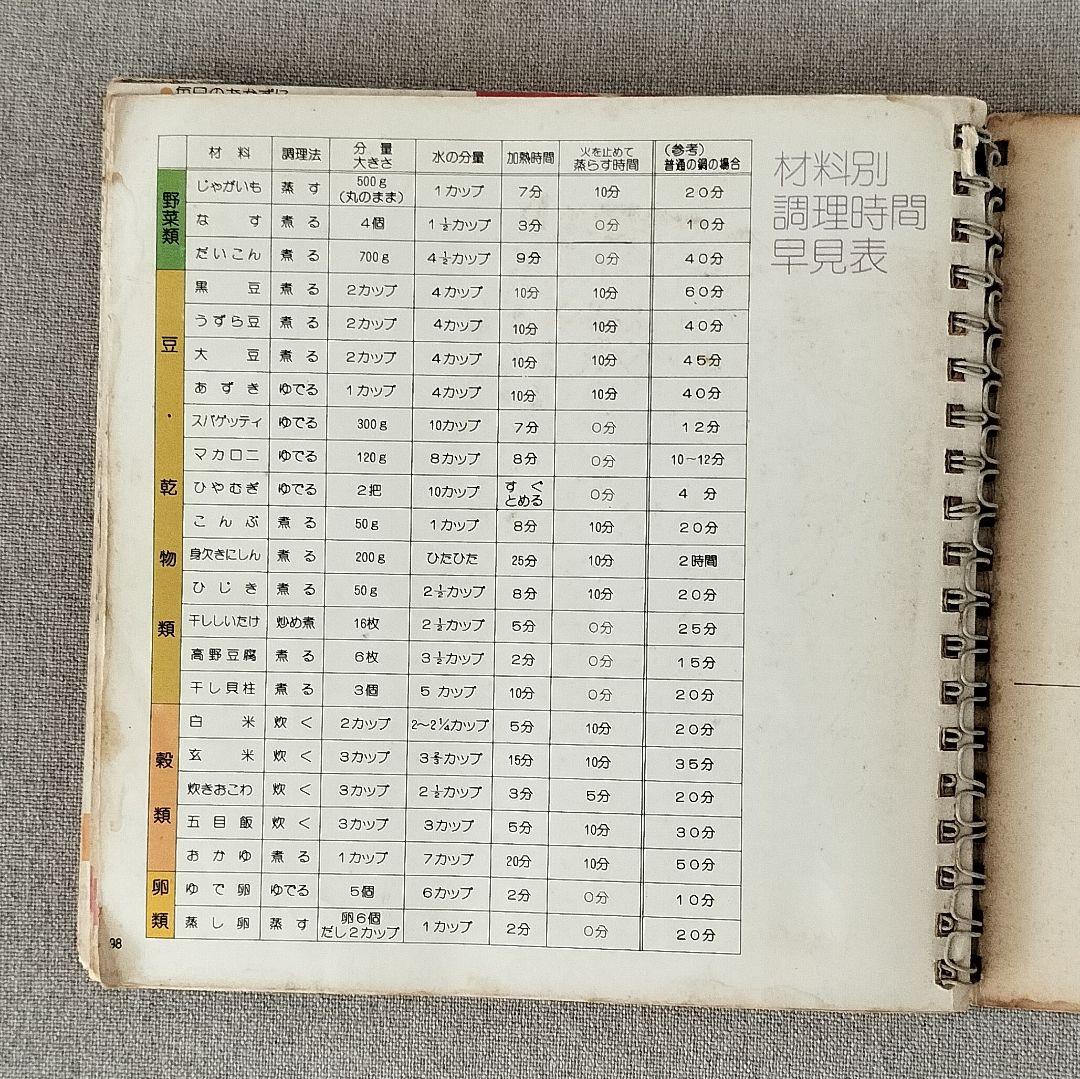 毎日のおかずに
材料 調理法 分量 大きさ 水の分量 加熱時間 火を止めて 蒸らす時間 (参考) 普通の鍋の場合
材料別
調理時間
早見表
野菜類
じゃがいも 蒸す 500g (丸のまま) 1カップ 7分 10分 20分
なす 煮る 4個 1½カップ 3分 0分 10分
だいこん 煮る 700g 4½カップ 9分 0分 40分
豆・乾物類
黒豆 煮る 2カップ 4カップ 10分 10分 60分
うずら豆 煮る 2カップ 4カップ 10分 10分 40分
大豆 煮る 2カップ 4カップ 10分 10分 45分
あずき ゆでる 1カップ 4カップ 10分 10分 40分
スパゲッティ ゆでる 300g 10カップ 7分 0分 12分
マカロニ ゆでる 120g 8カップ 8分 0分 10〜12分
ひやむぎ ゆでる 2把 10カップ すぐ とめる 0分 4分
こんぶ 煮る 50g 1カップ 8分 10分 20分
身欠きにしん 煮る 200g ひたひた 25分 10分 2時間
ひじき 煮る 50g 2½カップ 8分 10分 20分
干ししいたけ 炒め煮 16枚 2½カップ 5分 0分 25分
高野豆腐 煮る 6枚 3½カップ 2分 0分 15分
干し貝柱 煮る 3個 5カップ 10分 0分 20分
穀類
白米 炊く 2カップ 2〜2¼カップ 5分 10分 20分
玄米 炊く 3カップ 3⅗カップ 15分 10分 35分
炊きおこわ 炊く 3カップ 2½カップ 3分 5分 20分
五目飯 炊く 3カップ 3カップ 5分 10分 30分
おかゆ 煮る 1カップ 7カップ 20分 10分 50分
卵類
ゆで卵 ゆでる 5個 6カップ 2分 0分 10分
蒸し卵 蒸す 卵6個 だし2カップ 1カップ 2分 0分 20分
98